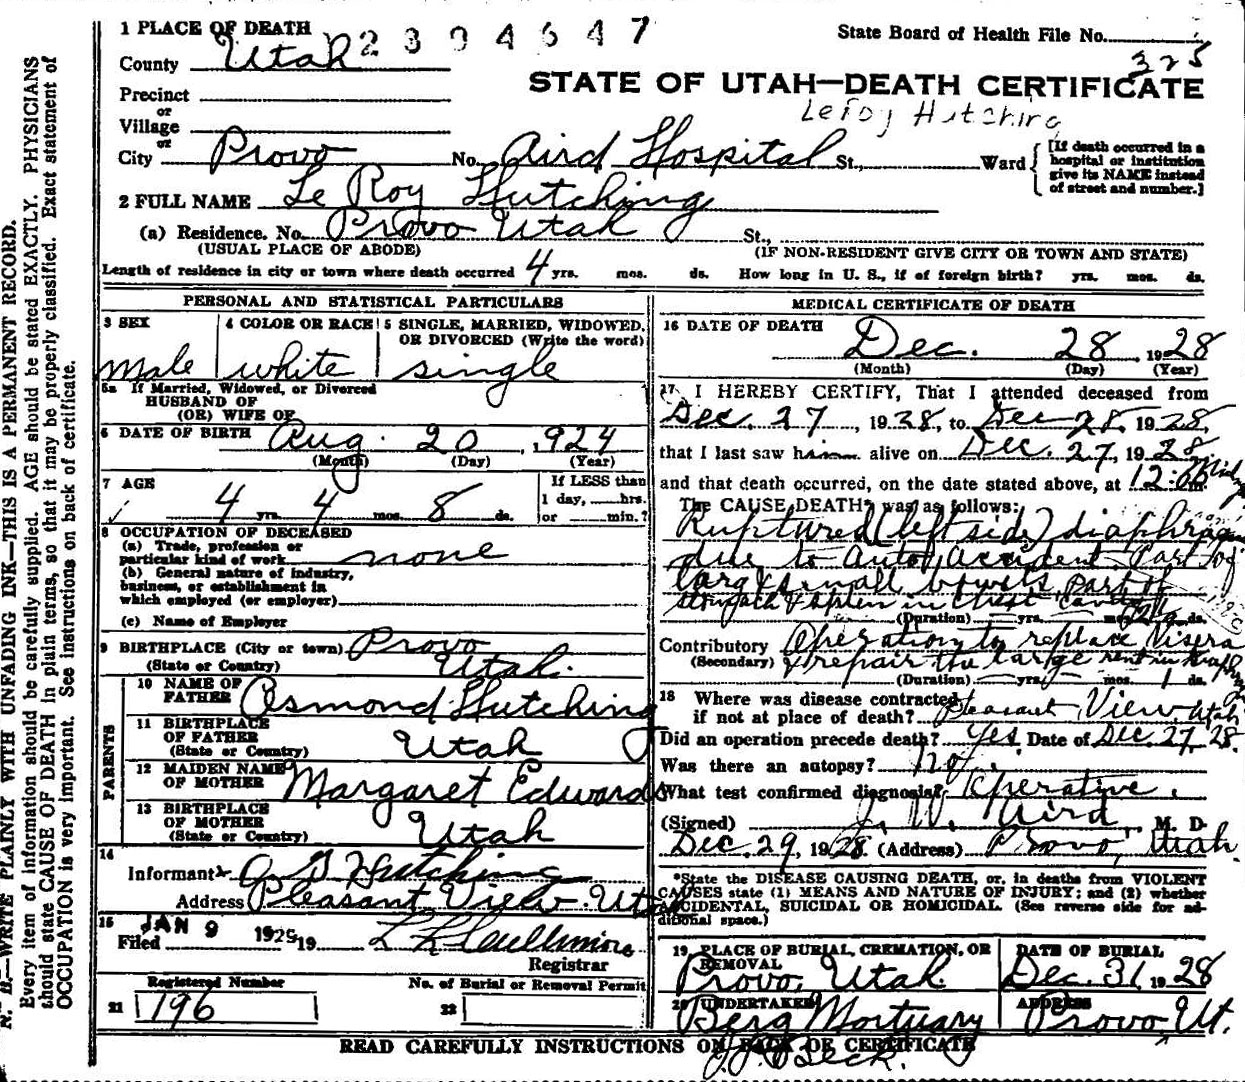 1 PLACE OF DEATH 2394647
State Board of Health File No.
325
County Utah
STATE OF UTAH—DEATH CERTIFICATE
Precinct
or
Village
LeRoy Hutching
or
City Provo No. Aird Hospital St., Ward
[If death occurred in a hospital or institution give its NAME instead of street and number.]
2 FULL NAME Le Roy Hutching
(a) Residence. No. Provo Utah St.,
(USUAL PLACE OF ABODE) (IF NON-RESIDENT GIVE CITY OR TOWN AND STATE)
Length of residence in city or town where death occurred 4 yrs. mos. ds. How long in U. S., if of foreign birth? yrs. mos. ds.
PERSONAL AND STATISTICAL PARTICULARS
3 SEX 4 COLOR OR RACE 5 SINGLE, MARRIED, WIDOWED, OR DIVORCED (Write the word)
male white single
5a If Married, Widowed, or Divorced
HUSBAND OF
(OR) WIFE OF
6 DATE OF BIRTH Aug. 20, 1924
(Month) (Day) (Year)
7 AGE
If LESS than
1 day, hrs.
or min.?
4 yrs. 4 mos. 8 ds.
8 OCCUPATION OF DECEASED
(a) Trade, profession or
particular kind of work none
(b) General nature of industry,
business, or establishment in
which employed (or employer)
(c) Name of Employer
9 BIRTHPLACE (City or town) Provo
(State or Country) Utah.
PARENTS
10 NAME OF
FATHER Osmond Hutching
11 BIRTHPLACE
OF FATHER
(State or Country) Utah
12 MAIDEN NAME
OF MOTHER Margaret Edwards
13 BIRTHPLACE
OF MOTHER
(State or Country) Utah
14
Informant Hutching
Address Pleasant View Utah
15 JAN 9 1929
Filed 19
Registrar
Registered Number No. of Burial or Removal Permit
21 196 22
MEDICAL CERTIFICATE OF DEATH
16 DATE OF DEATH
Dec. 28, 1928
(Month) (Day) (Year)
17 I HEREBY CERTIFY, That I attended deceased from
Dec. 27, 1928, to Dec 28, 1928,
that I last saw him alive on Dec. 27, 1928
and that death occurred, on the date stated above, at 12:
The CAUSE OF DEATH* was as follows:
Ruptured (left side) diaphragm
due to Auto Accident. Part of
large & small bowels, part of
stomach & spleen in chest cavity
(Duration) yrs. mos. ds.
Contributory Operation to replace Visera
(Secondary) & repair the large rent in
(Duration) yrs. mos. 1 ds.
18 Where was disease contracted
if not at place of death? Pleasant View, Utah
Did an operation precede death? Yes. Date of Dec. 27, 28.
Was there an autopsy? no.
What test confirmed diagnosis? Operative.
(Signed) J. W. Aird, M. D.
Dec. 29, 1928. (Address) Provo, Utah.
*State the DISEASE CAUSING DEATH, or, in deaths from VIOLENT
CAUSES state (1) MEANS AND NATURE OF INJURY; and (2) whether
ACCIDENTAL, SUICIDAL OR HOMICIDAL. (See reverse side for ad-
ditional space.)
19 PLACE OF BURIAL, CREMATION, OR REMOVAL DATE OF BURIAL
Provo, Utah. Dec. 31 1928
20 UNDERTAKER ADDRESS
Berg Mortuary Provo, Ut.
READ CAREFULLY INSTRUCTIONS ON BACK OF CERTIFICATE
Beck.
N. B.—WRITE PLAINLY WITH UNFADING INK—THIS IS A PERMANENT RECORD.
Every item of information should be carefully supplied. AGE should be stated EXACTLY. PHYSICIANS
should state CAUSE OF DEATH in plain terms, so that it may be properly classified. Exact statement of
OCCUPATION is very important. See instructions on back of certificate.